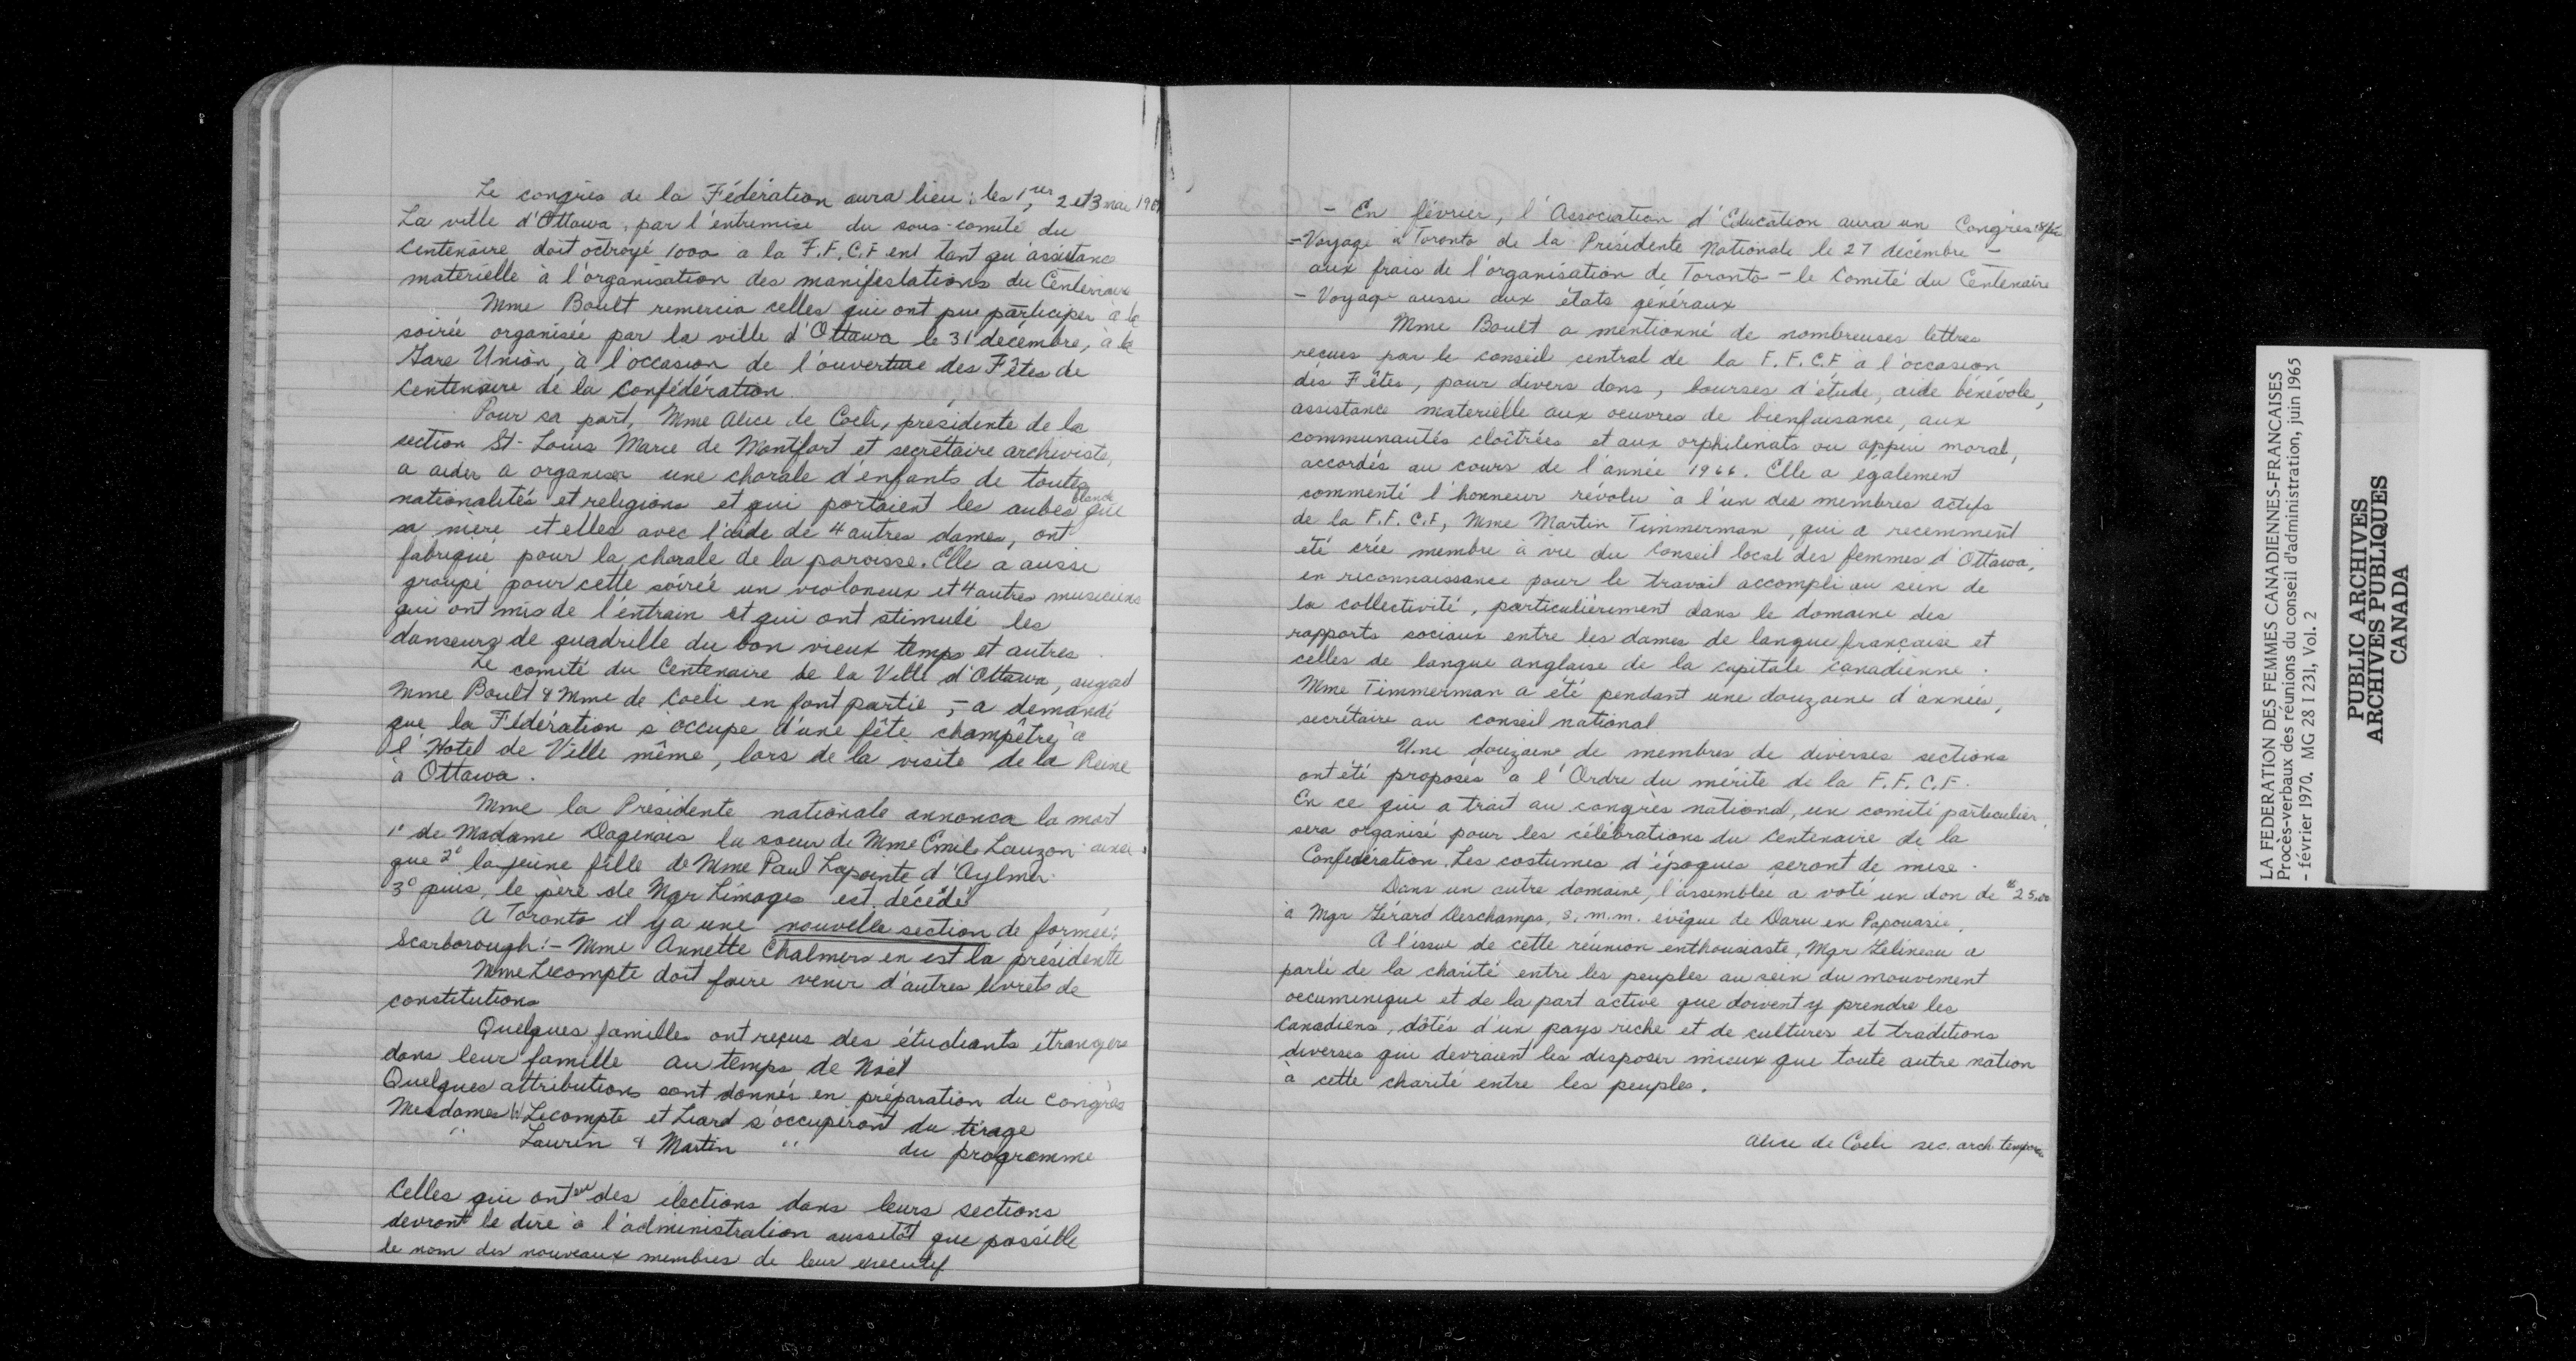 Le congrès de la Fédération aura lieu : les 1er, 2 et 3 mai
La ville d'Ottawa, par l'entremise du sous-comité du
Centenaire doit octroyé 1000 à la F.F.C.F ent tant qu'assistance
matérielle à l'organisation des manifestations du Centenaire
Mme Boult remercia celles qui ont pu participer à la
soirée organisée par la ville d'Ottawa le 31 décembre, à la
Gare Union, à l'occasion de l'ouverture des Fêtes de
Centenaire de la Confédération.
Pour sa part, Mme Alice de Coeli, présidente de la
section St-Louis Marie de Montfort et secrétaire archiviste,
a aider a organiser une chorale d'enfants de toutes
nationalités et religions et qui portaient les aubes blanche que
sa mère et elles avec l'aide de 4 autres dames, ont
fabriqué pour la chorale de la paroisse. Elle a aussi
groupé pour cette soirée un violoneux et 4 autres musiciens
qui ont mis de l'entrain et qui ont stimulé les
danseurs de quadrille du bon vieux temps et autres.
Le comité du Centenaire de la Ville d'Ottawa, auquel
Mme Boult & Mme de Coeli en font partie, - a demandé
que la Fédération s'occupe d'une fête champêtre à
l'Hotel de Ville même, lors de la visite de la Reine
à Ottawa.
Mme la Présidente nationale annonca la mort
1° de Madame Dagenais la soeur de Mme Emile Lauzon ainsi
que 2° la jeune fille de Mme Paul Lapointe d'Aylmer.
3° puis, le père de Mgr Limoges est décédé
A Toronto il y a une nouvelle section de formée;
Scarborough :- Mme Annette Chalmers en est la présidente
Mme Lecompte doit faire venir d'autres livrets de
constitutions
Quelques familles ont reçus des étudiants étrangers
dans leur famille au temps de Noël
Quelques attributions sont donnés en préparation du Congrès
Mesdames W Lecompte et Liard s'occuperont du tirage
" Laurin & Martin " du programme
Celles qui ont eu des élections dans leurs sections
devront le dire à l'administration aussitôt que possible
le nom des nouveaux membres de leur executif
- En février, l'Association d'Education aura un Congrès
- Voyage à Toronto de la Présidente Nationale le 27 décembre -
aux frais de l'organisation de Toronto - le Comité du Centenaire
- Voyage aussi aux états généraux
Mme Boult a mentionné de nombreuses lettres
reçues par le conseil central de la F.F.C.F, à l'occasion
des Fêtes, pour divers dons, bourses d'étude, aide bénévole,
assistance materielle aux oeuvres de bienfaisance, aux
communautés cloîtrées et aux orphilinats ou appui moral,
accordés au cours de l'année 1966. Elle a également
commenté l'honneur révolu à l'un des membres actifs
de la F.F.C.F, Mme Martin Timmerman, qui a recemment
été crée membre à vie du Conseil local des femmes d'Ottawa,
en reconnaissance pour le travail accompli au sein de
la collectivité, particulièrement dans le domaine des
rapports sociaux entre les dames de langue française et
celles de langue anglaise de la capitale canadienne.
Mme Timmerman a été pendant une douzaine d'années,
secrétaire au conseil national
Une douzaine de membres de diverses sections
ont été proposés à l'Ordre du mérite de la F.F.C.F.
En ce qui a trait au congrès national, un comité particulier
sera organisé pour les célébrations du Centenaire de la
Confédération. Les costumes d'époques seront de mise.
Dans un autre domaine, l'assemblee a voté un don de $25.00
à Mgr Gérard Deschamps, s.m.m. évêque de Daru en Papouasie.
A l'issue de cette réunion enthousiaste, Mgr Gélineau a
parlé de la charité entre les peuples au sein du mouvement
oecuménique et de la part active que doivent y prendre les
Canadiens, dôtés d'un pays riche et de cultures et traditions
diverses qui devraient les disposer mieux que toute autre nation
à cette charité entre les peuples.
Alice de Coeli sec. arch.
LA FEDERATION DES FEMMES CANADIENNES-FRANCAISES
Procès-verbaux des réunions du conseil d'administration, juin 1965
- février 1970. MG 28 I 231, Vol. 2
PUBLIC ARCHIVES
ARCHIVES PUBLIQUES
CANADA